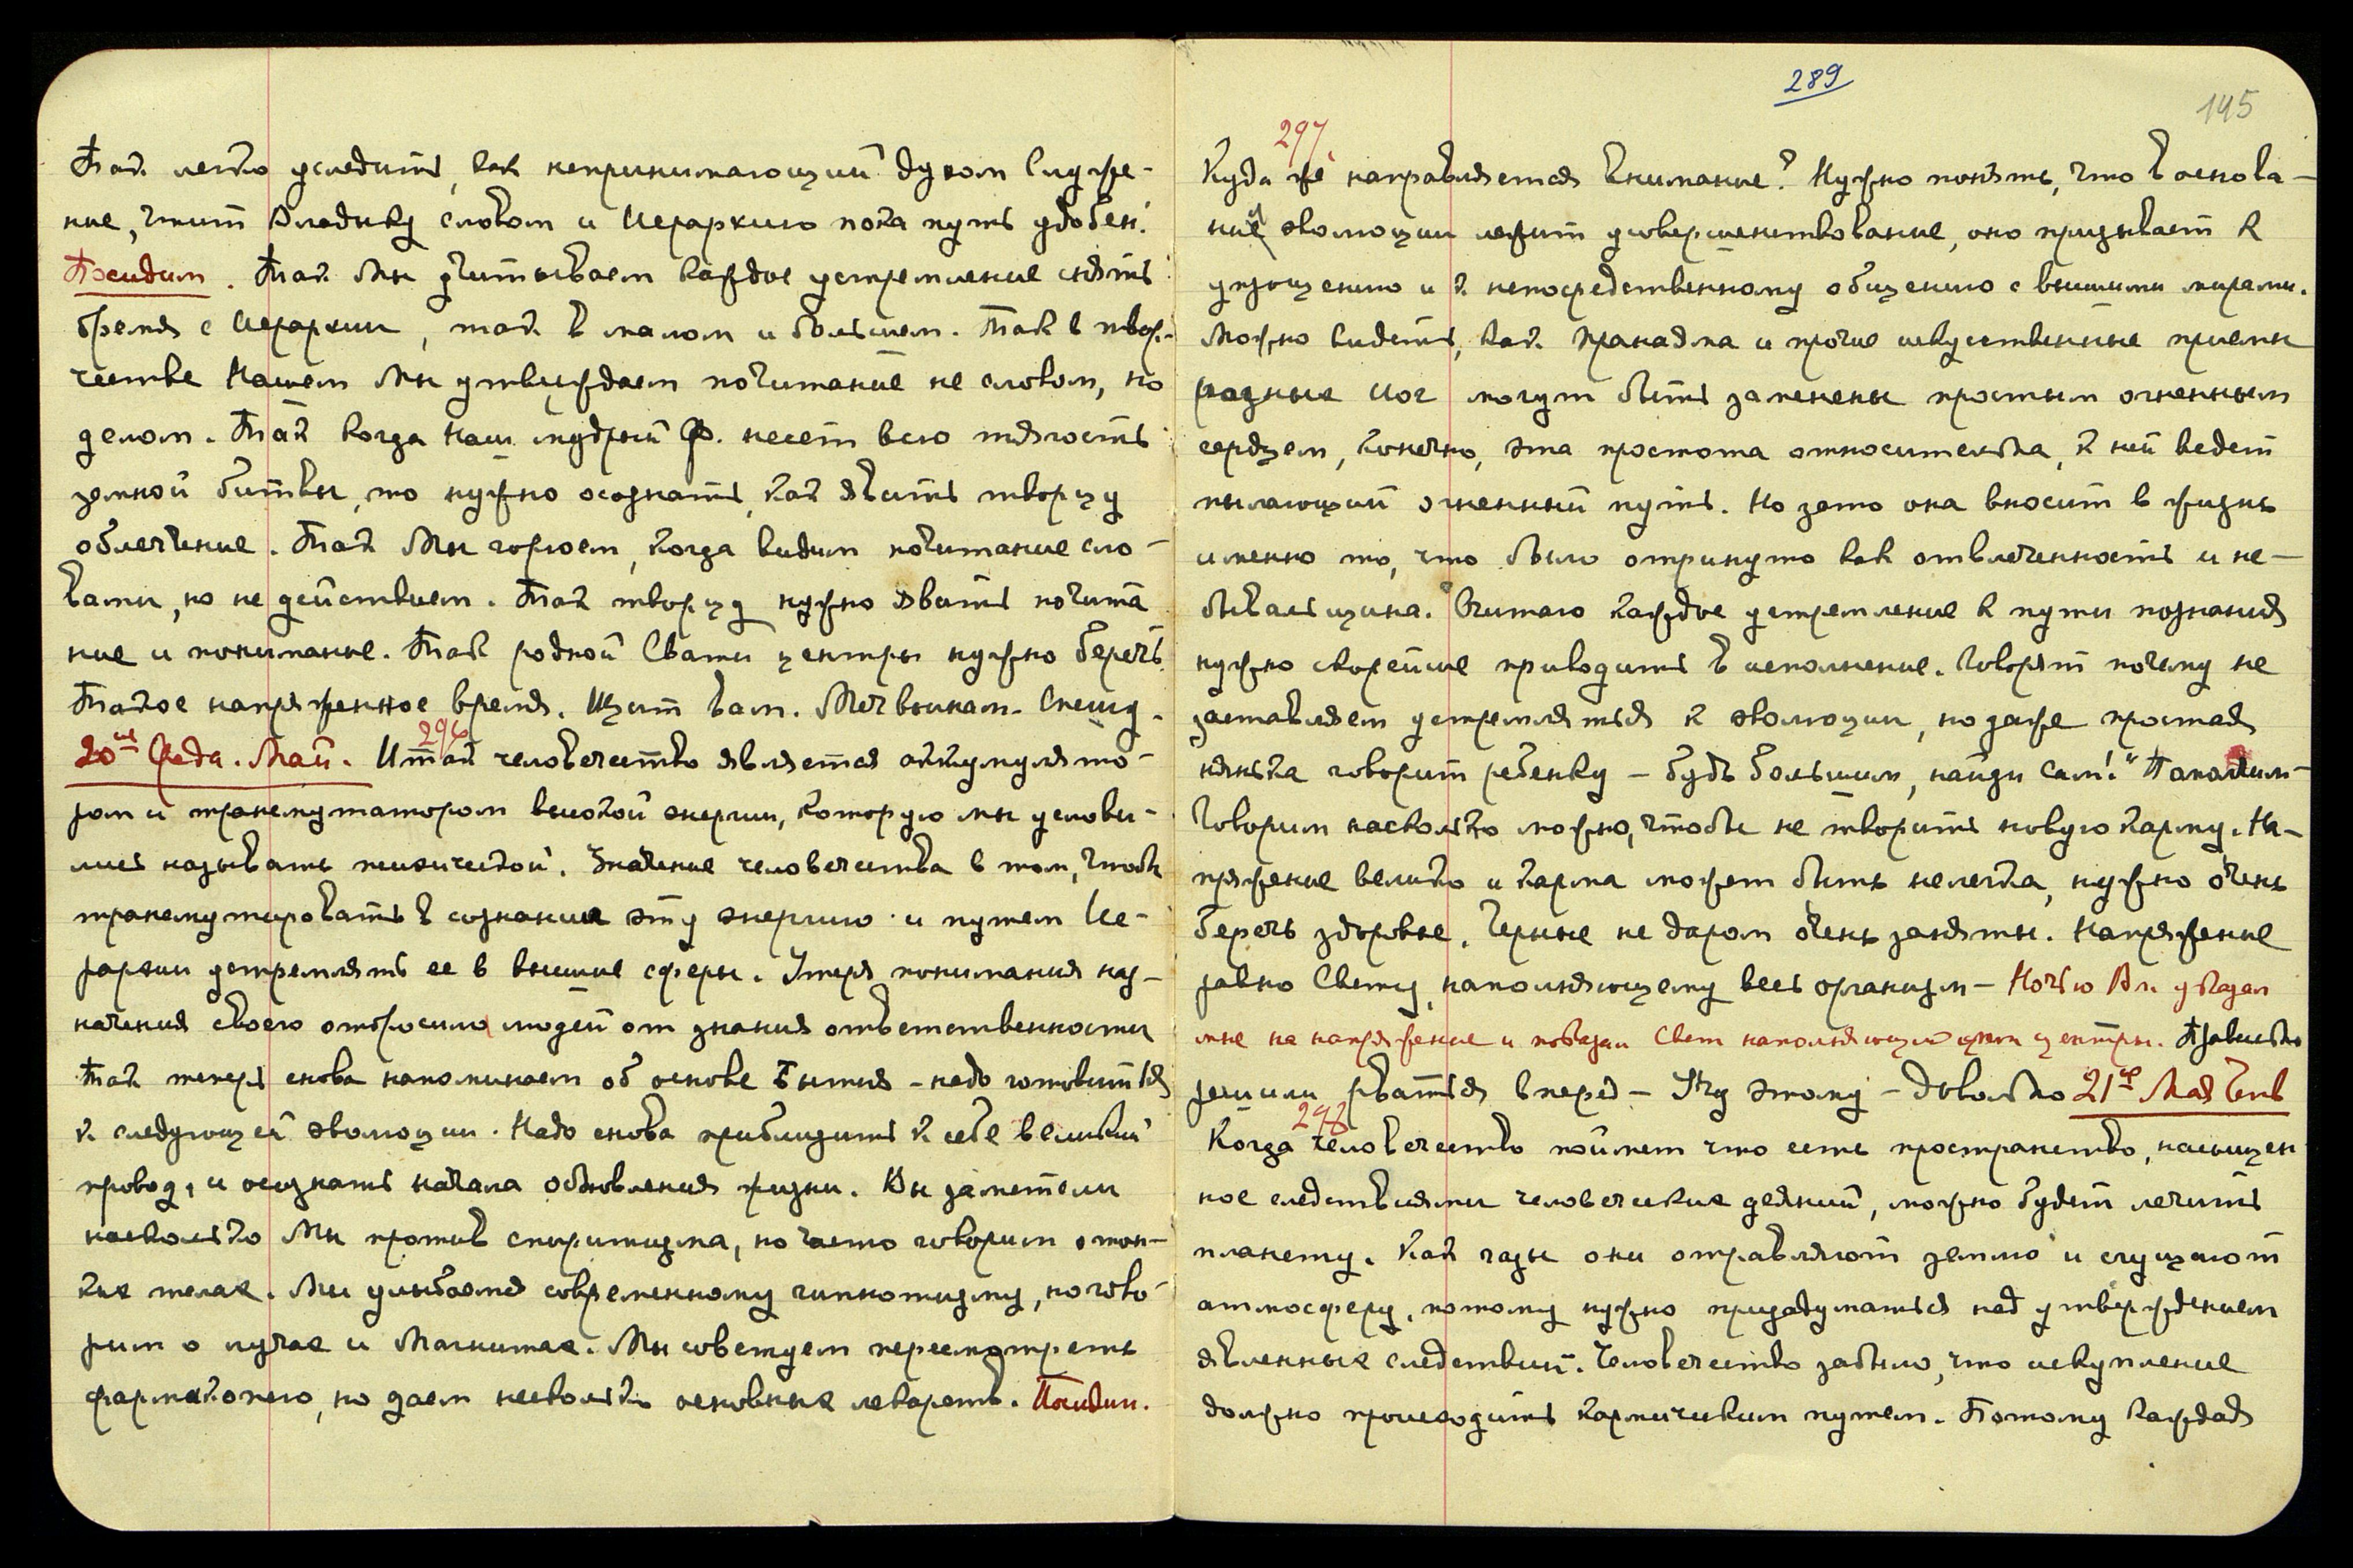 Так легко уследить, как непринимающий духом Служе-
ние, чтит Владыку словом и Иерархию пока путь удобен.
Посидим. Так Мы учитываем каждое устремление снять
бремя с Иерархии, так в малом и большем. Так в твор-
честве Нашем Мы утверждаем почитание не словом, но
делом. Так когда Наш мудрый Ф. несет всю тягость
земной битвы, то нужно осознать, как явить творцу
облегчение. Так Мы горюем, когда видим почитание сло-
вами, но не действием. Так творцу нужно явить почита
ние и понимание. Так родной Свати центры нужно беречь.
Такое напряженное время. Щит вам. Меч врагам. Спешу.
296
20го Среда. Май. Итак человечество является аккумулято-
ром и трансмутатором высокой энергии, которую мы услови-
лись называть психической. Значение человечества в том, чтобы
трансмутировать в сознании эту энергию и путем Ие-
рархии устремлять ее в высшие сферы. Утеря понимания наз-
начения своего отбросило людей от знания ответственности
Так теперь снова напоминаем об основе Бытия - надо готовиться
к следующей эволюции. Надо снова приблизить к себе великий
провод, и осознать начала обновления жизни. Вы заметили
насколько Мы против спиритизма, но часто говорим о тон-
ких телах. Мы улыбаемся современному гипнотизму, но гово-
рим о лучах и Магнитах. Мы советуем пересмотреть
фармакопею, но даем несколько основных лекарств. Посидим.
289
145
297
Куда же направляется внимание? Нужно понять, что в основа-
нии эволюции лежит усовершенствование, оно призывает к
упрощению и к непосредственному общению с высшими мирами.
Можно видеть, как Пранаяма и прочие искусственные приемы
разных Йог могут быть заменены простым огненным
сердцем, конечно, эта простота относительна, к ней ведет
пылающий огненный путь. Но зато она вносит в жизнь
именно то, что было отринуто как отвлеченность и не-
бывальщина. Считаю каждое устремление к пути познания
нужно скорейше приводить в исполнение. Говорят почему не
заставляем устремляться к эволюции, но даже простая
нянька говорит ребенку - будь большим, найди сам!"
Говорим насколько можно, чтобы не творить новую карму. На-
пряжение велико и карма может быть нелегка, нужно очень
беречь здоровье. Черные не даром очень заняты. Напряжение
равно Свету, наполняющему весь организм - Ночью Вл. указал
мне на напряжение и показал Свет наполняющий центры. Правильно
решили рваться вперед - Учу этому - Довольно 21го Мая Четв
298
Когда человечество поймет что есть пространство, насыщен
ное следствиями человеческих деяний, можно будет лечить
планету. Как газы они отравляют землю и сгущают
атмосферу, потому нужно призадуматься над утверждением
явленных следствий. Человечество забыло, что искупление
должно происходить кармическим путем. Потому каждая